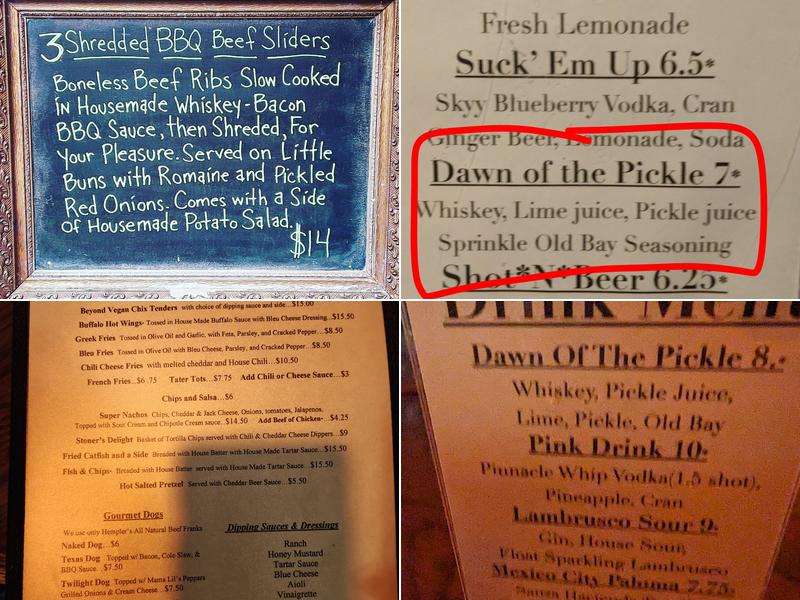 3 Shredded BBQ Beef Sliders
Boneless Beef Ribs Slow Cooked
in Housemade Whiskey-Bacon
BBQ Sauce, then Shredded, For
Your Pleasure. Served on Little
Buns with Romaine and Pickled
Red Onions. Comes with a Side
of Housemade Potato Salad.
$14
Fresh Lemonade
Suck' Em Up 6.5*
Skyy Blueberry Vodka, Cran
Ginger Beer, Lemonade, Soda
Dawn of the Pickle 7*
Whiskey, Lime juice, Pickle juice
Sprinkle Old Bay Seasoning
Shot*N*Beer 6.25*
Beyond Vegan Chix Tenders with choice of dipping sauce and side...$15.00
Buffalo Hot Wings- Tossed in House Made Buffalo Sauce with Bleu Cheese Dressing...$15.50
Greek Fries Tossed in Olive Oil and Garlic, with Feta, Parsley, and Cracked Pepper...$8.50
Bleu Fries Tossed in Olive Oil with Bleu Cheese, Parsley, and Cracked Pepper...$8.50
Chili Cheese Fries with melted cheddar and House Chili...$10.50
French Fries...$6.75 Tater Tots...$7.75 Add Chili or Cheese Sauce...$3
Chips and Salsa...$6
Super Nachos Chips, Cheddar & Jack Cheese, Onions, tomatoes, Jalapenos,
Topped with Sour Cream and Chipotle Cream sauce...$14.50 Add Beef of Chicken-...$4.25
Stoner's Delight Basket of Tortilla Chips served with Chili & Cheddar Cheese Dippers...$9
Fried Catfish and a Side Breaded with House Batter with House Made Tartar Sauce...$15.50
Fish & Chips- Breaded with House Batter served with House Made Tartar Sauce...$15.50
Hot Salted Pretzel Served with Cheddar Beer Sauce...$5.50
Gourmet Dogs
We use only Hempler's All Natural Beef Franks
Naked Dog...$6
Texas Dog Topped w/ Bacon, Cole Slaw, &
BBQ Sauce...$7.50
Twilight Dog Topped w/ Mama Lil's Peppers
Grilled Onions & Cream Cheese...$7.50
Dipping Sauces & Dressings
Ranch
Honey Mustard
Tartar Sauce
Blue Cheese
Aioli
Vinaigrette
Drink Menu
Dawn Of The Pickle 8.*
Whiskey, Pickle Juice,
Lime, Pickle, Old Bay
Pink Drink 10*
Pinnacle Whip Vodka(1.5 shot),
Pineapple, Cran
Lambrusco Sour 9*
Gin, House Sour,
Float Sparkling Lambrusco
Mexico City Paloma 7.75*